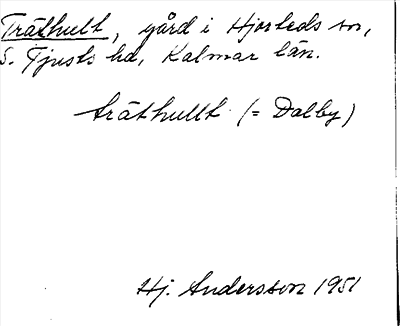 Träthult, gård i Hjorteds sn,
S. Tjusts hd, Kalmar län.
träthullt (= Dalby)
Hj. Andersson 1951